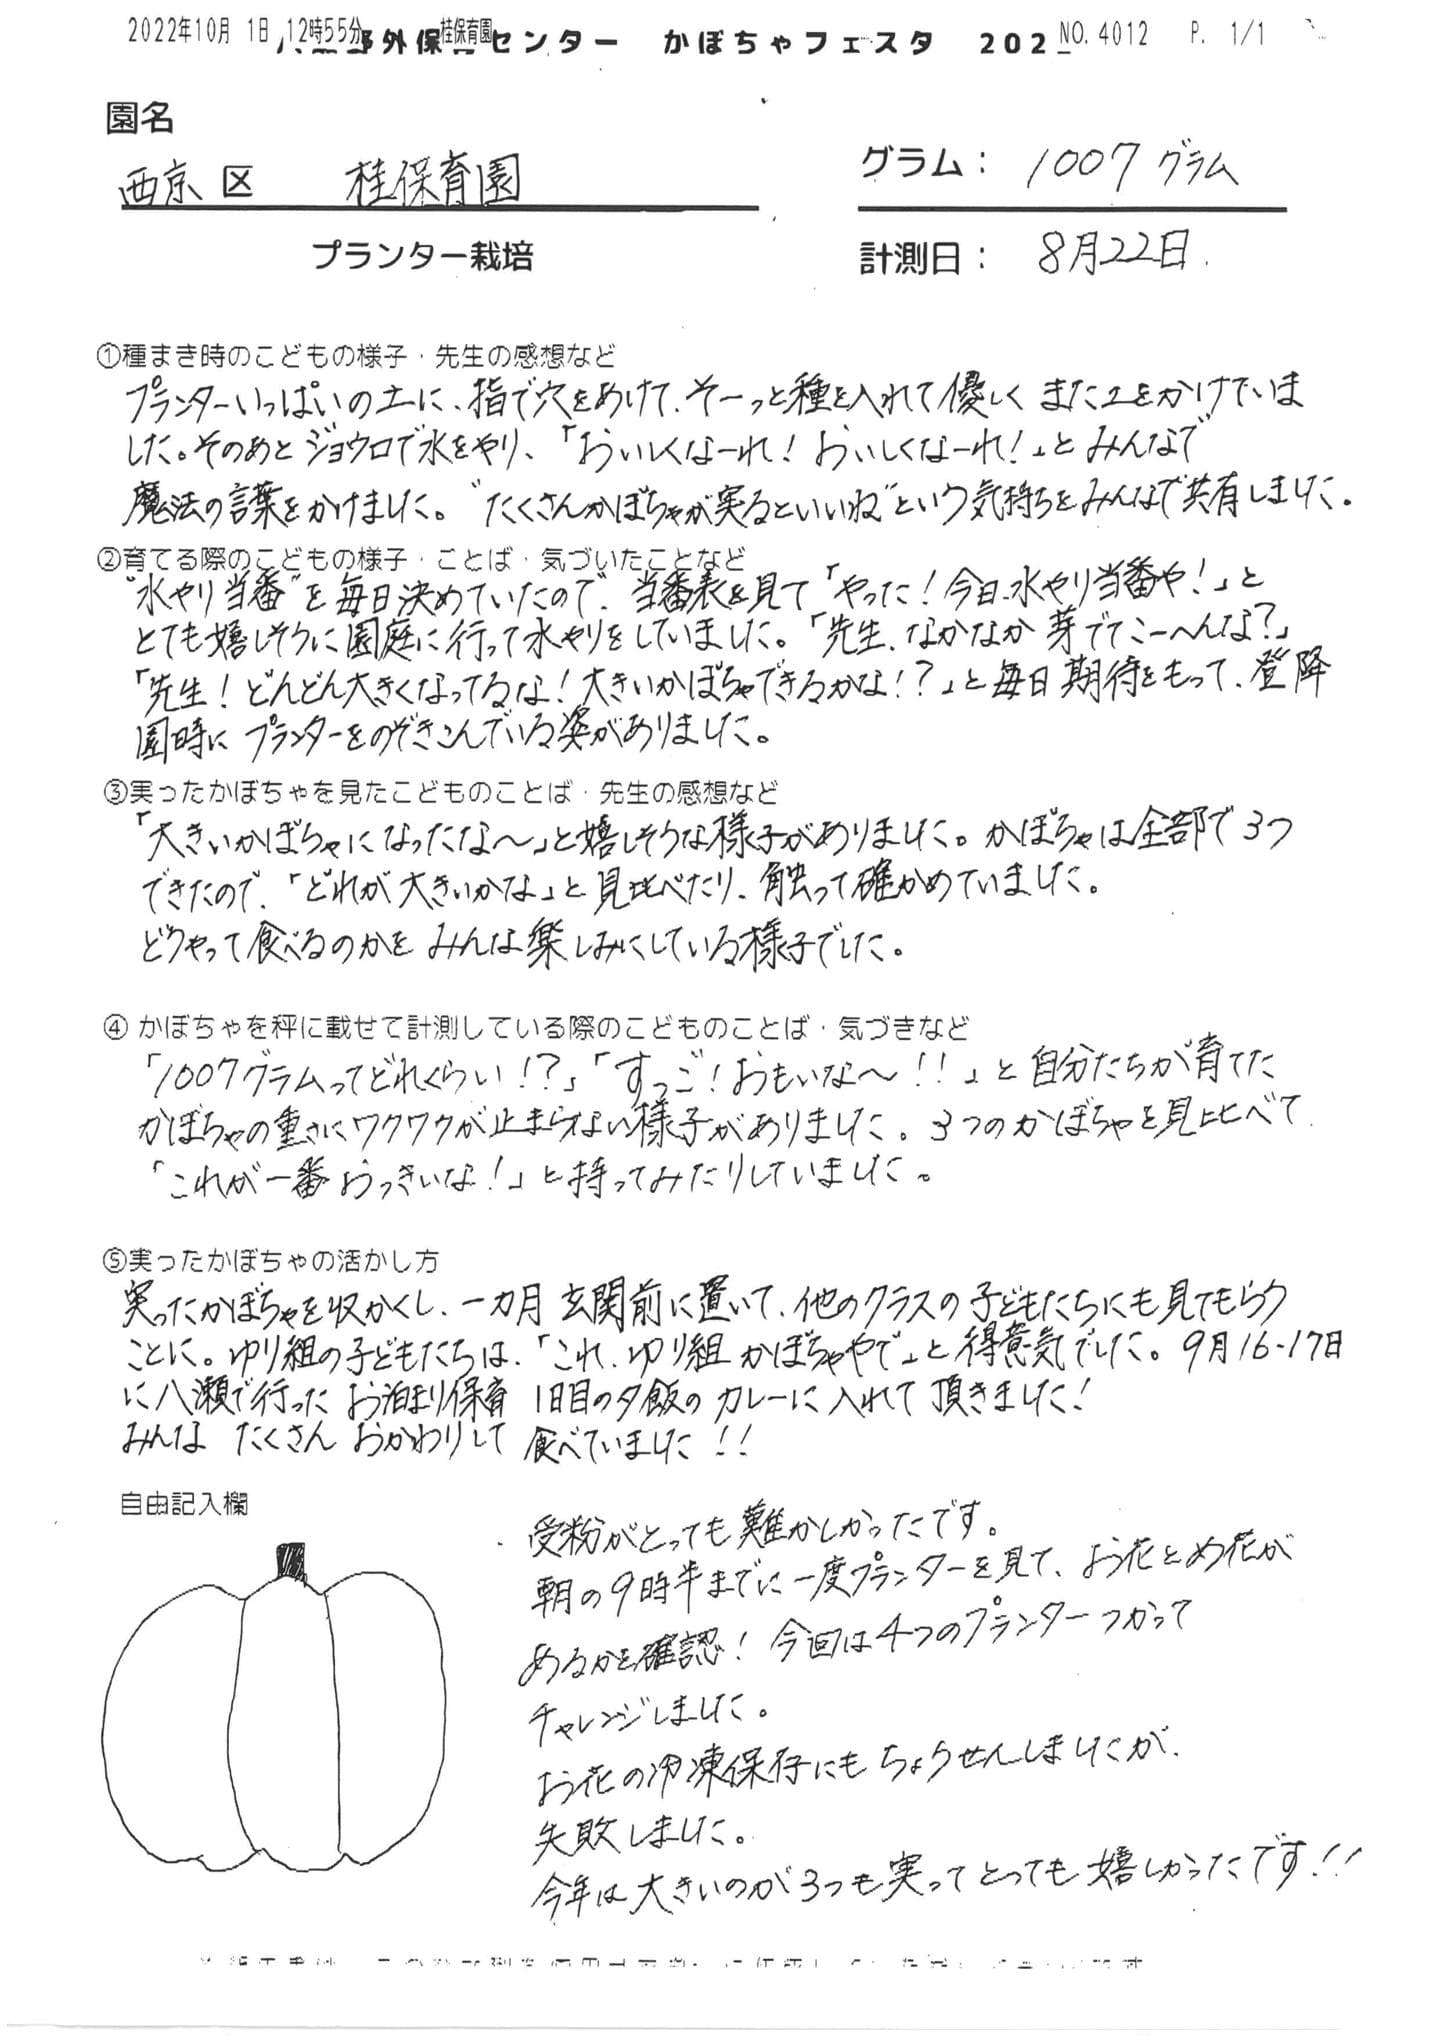 2022年10月 1日 12時55分 桂保育園 NO.4012 P. 1/1
野外保 センター かぼちゃフェスタ 202
園名
西京区 桂保育園
グラム： 1007グラム
プランター栽培
計測日： 8月22日.
①種まき時のこどもの様子・先生の感想など
プランターいっぱいの土に、指で穴をあけて、そーっと種を入れて優しくまた土をかけていま
した。そのあとジョウロで水をやり、「おいしくなーれ！おいしくなーれ！」とみんなで
魔法の言葉をかけました。“たくさんかぼちゃが実るといいね”という気持ちをみんなで共有しました。
②育てる際のこどもの様子・ことば・気づいたことなど
“水やり当番”を毎日決めていたので、当番表を見て「やった！今日、水やり当番や！」と
とても嬉しそうに園庭に行って水やりをしていました。「先生、なかなか芽でてこーへんな？」
「先生！どんどん大きくなってるな！大きいかぼちゃできるかな！？」と毎日期待をもって、登降
園時にプランターをのぞきこんでいる姿がありました。
③実ったかぼちゃを見たこどものことば・先生の感想など
「大きいかぼちゃになったな～」と嬉しそうな様子がありました。かぼちゃは全部で3つ
できたので、「どれが大きいかな」と見比べたり、触って確かめていました。
どうやって食べるのかをみんな楽しみにしている様子でした。
④ かぼちゃを秤に載せて計測している際のこどものことば・気づきなど
「1007グラムってどれくらい！？」「すっご！おもいな～！！」と自分たちが育てた
かぼちゃの重さにワクワクが止まらない様子がありました。3つのかぼちゃを見比べて
「これが一番おっきいな！」と持ってみたりしていました。
⑤実ったかぼちゃの活かし方
実ったかぼちゃを収かくし、一カ月玄関前に置いて、他のクラスの子どもたちにも見てもらう
ことに。ゆり組の子どもたちは、「これ、ゆり組かぼちゃやで」と得意気でした。9月16-17日
に八瀬で行ったお泊まり保育1日目の夕飯のカレーに入れて頂きました！
みんなたくさんおかわりして食べていました！！
自由記入欄
受粉がとっても難かしかったです。
朝の9時半までに一度プランターを見て、お花とめ花が
あるかを確認！今回は4つのプランターつかって
チャレンジしました。
お花の冷凍保存にもちょうせんしましたが、
失敗しました。
今年は大きいのが3つも実ってとっても嬉しかったです！！